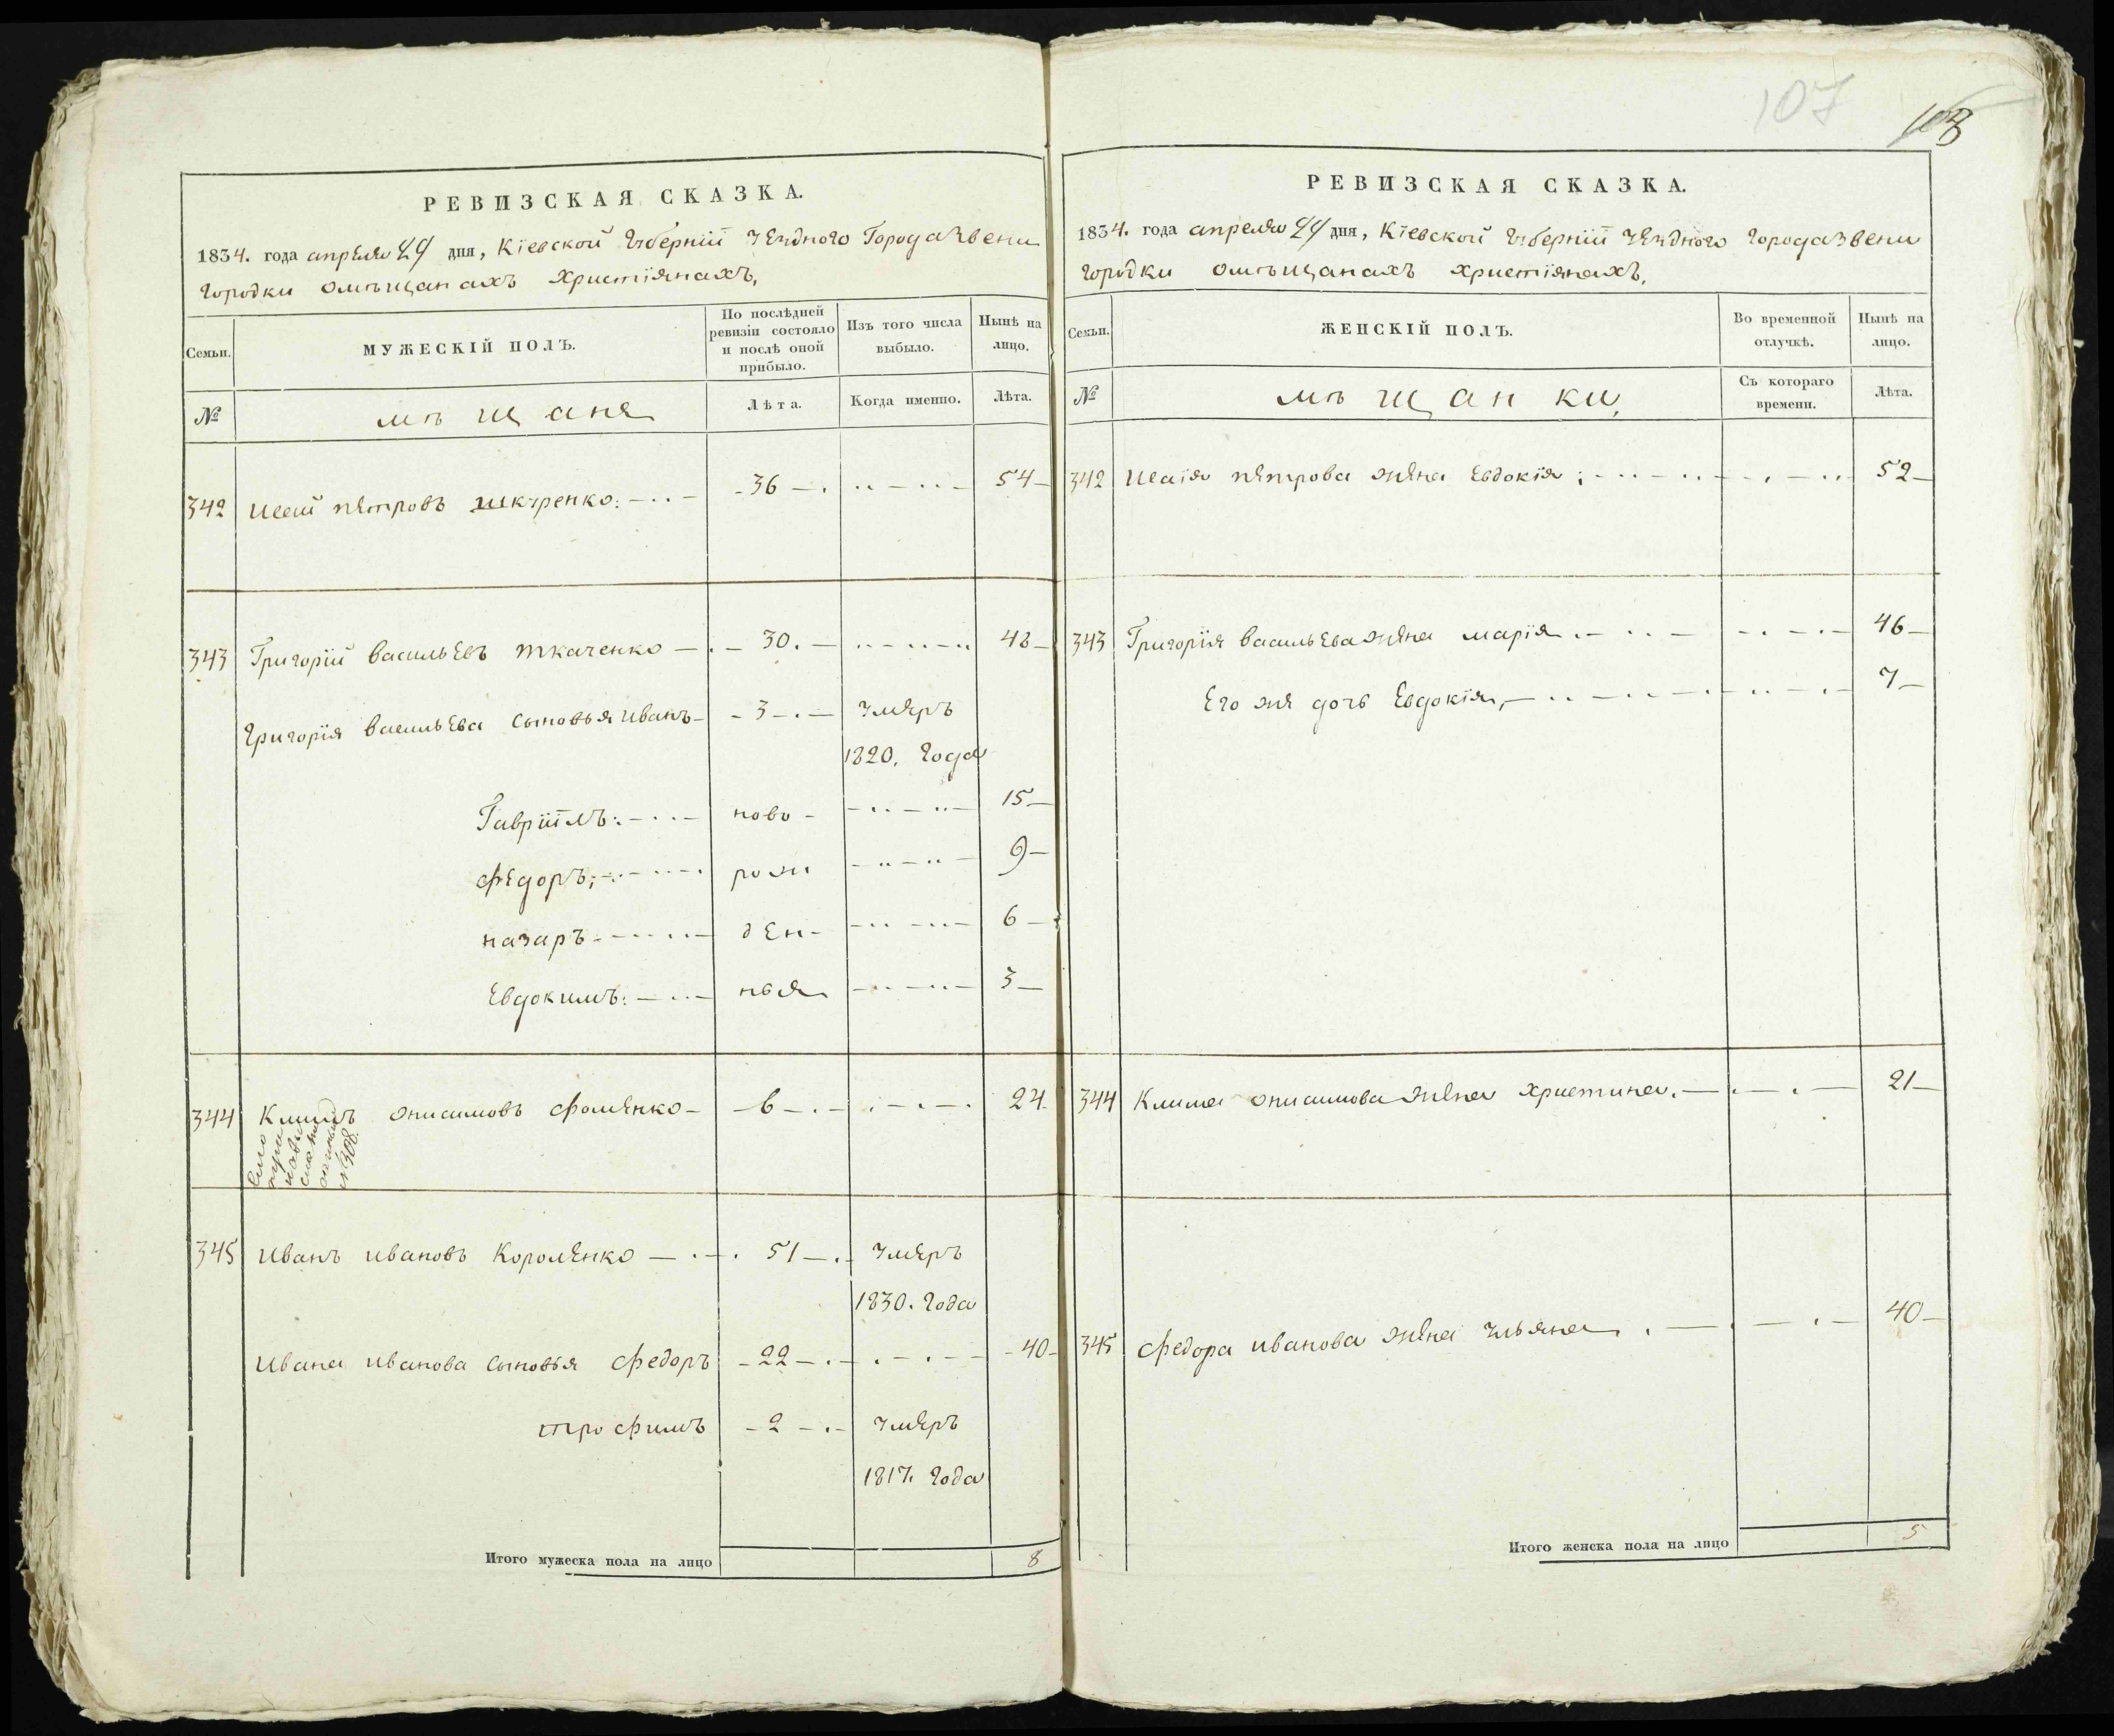 107
РЕВИЗСКАЯ СКАЗКА.
1834. года апреля 24 дня, Кіевской Губерніи уезднаго Города Звени
городки омѣщанахъ христіянахъ,
Семьи.
МУЖЕСКІЙ ПОЛЪ.
По послѣдней ревизіи состояло и послѣ оной прибыло.
Изъ того числа выбыло.
Нынѣ на лицо.
№
мѣщане
Лѣта.
Когда именно.
Лѣта.
342 Исай петровъ шкуренко: 36 54
343 Григорій васильевъ ткаченко 30. 48
Григорія васильева сыновья иванъ 3 умеръ
1820. года
Гавріилъ: ново 15
Федоръ; рож 9
назаръ ден 6
Евдокимъ: ныя 3
344 Климъ онисимовъ фоменко 6 24
№ 308.
345 Иванъ ивановъ Короленко 51 умеръ
1830. года
Ивана иванова сыновья Федоръ 22 40
трофимъ 2 умеръ
1817. года
Итого мужеска пола на лицо 8
РЕВИЗСКАЯ СКАЗКА.
1834. года апреля 24 дня, Кіевской Губерніи уезднаго Города Звени
городки омѣщанахъ христіянахъ,
Семьи.
ЖЕНСКІЙ ПОЛЪ.
Во временной отлучкѣ.
Нынѣ на лицо.
№
мѣщанки,
Съ котораго времени.
Лѣта.
342 Исаія петрова жена Евдокія; 52
343 Григорія васильева жена марія 46
Его же дочь Евдокія, 7
344 Клима онисимова жена христина. 21
345 Федора иванова жена ульяна 40
Итого женска пола на лицо 5